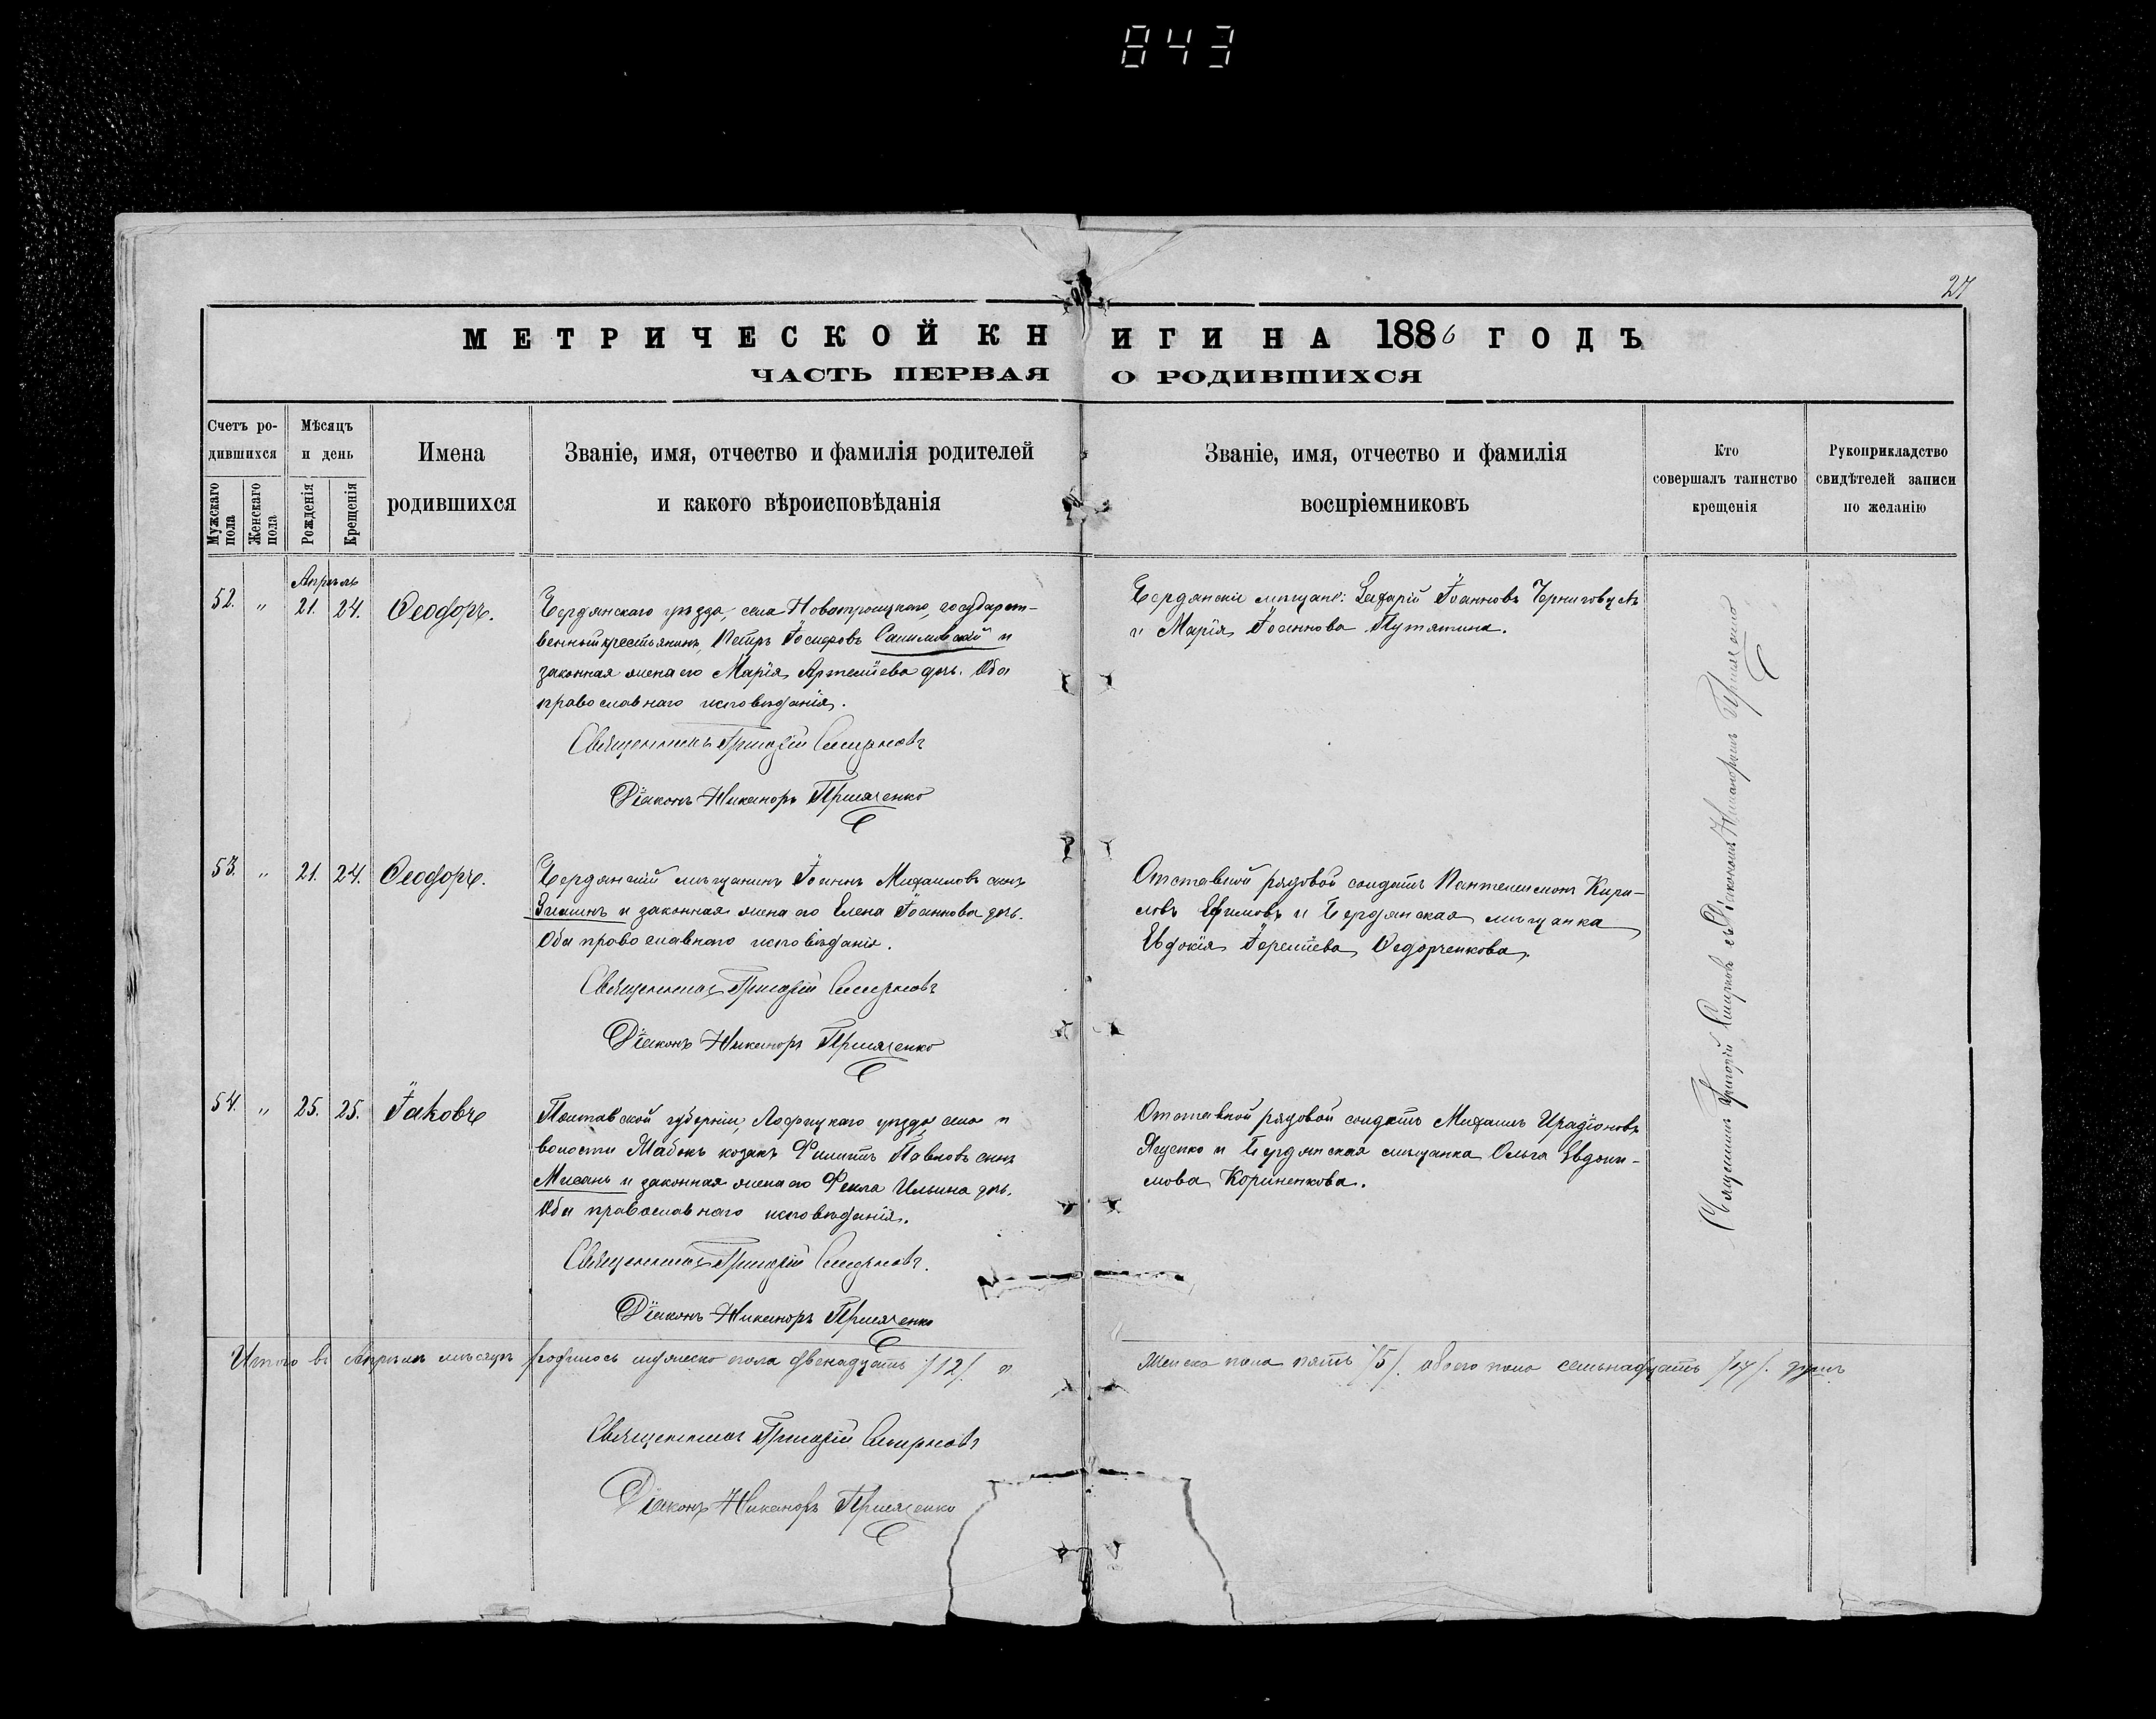 843
27
МЕТРИЧЕСКОЙ КНИГИ НА 1886 ГОДЪ
ЧАСТЬ ПЕРВАЯ О РОДИВШИХСЯ
Счетъ ро-
дившихся
Мужскаго пола
Женскаго пола
Мѣсяцъ
и день
Рожденія
Крещенія
Имена
родившихся
Званіе, имя, отчество и фамилія родителей
и какого вѣроисповѣданія
Званіе, имя, отчество и фамилія
воспріемниковъ
Кто
совершалъ таинство
крещенія
Рукоприкладство
свидѣтелей записи
по желанію
Апрѣль
52. " 21. 24. Ѳеодоръ.
Бердянскаго уѣзда, села Новотроицкаго, государст-
венный крестьянинъ, Петръ Іосифовъ и
законная жена его Марія Артеміева дчь. Оба
православнаго исповѣданія.
Священникъ Григорій Смирновъ
Діаконъ Никаноръ
Бердянскіе мѣщане: Захарій Іоанновъ
и Марія Іоаннова Путятина.
53. " 21. 24. Ѳеодоръ.
Бердянскій мѣщанинъ Іоаннъ Михаиловъ сынъ
Зиминъ и законная жена его Елена Іоаннова дчь.
Оба православнаго исповѣданія.
Священникъ Григорій Смирновъ
Діаконъ Никаноръ
Отставной рядовой солдатъ Пантелеимонъ Кири-
ловъ Ефимовъ и Бердянская мѣщанка
Евдокія Ѳедорченкова.
54. " 25. 25. Іаковъ
Полтавской губерніи, Лохвицкаго уѣзда, села и
волости козакъ Филиппъ Павловъ сынъ
Мисанъ и законная жена его Ѳекла Ильина дчь.
Оба православнаго исповѣданія.
Священникъ Григорій Смирновъ.
Діаконъ Никаноръ
Отставной рядовой солдатъ Михаилъ Иродіоновъ
Яценко и Бердянская мѣщанка Ольга Евдоки-
мова Кориненкова.
Священникъ Григорій Смирновъ съ Діакономъ Никаноромъ
Итого въ Апрѣлѣ мѣсяцѣ родилось мужеско пола двенадцать /12/. и женска пола пять /5/. обоего пола семьнадцать /17/. душъ
Священникъ Григорій Смирновъ
Діаконъ Никаноръ